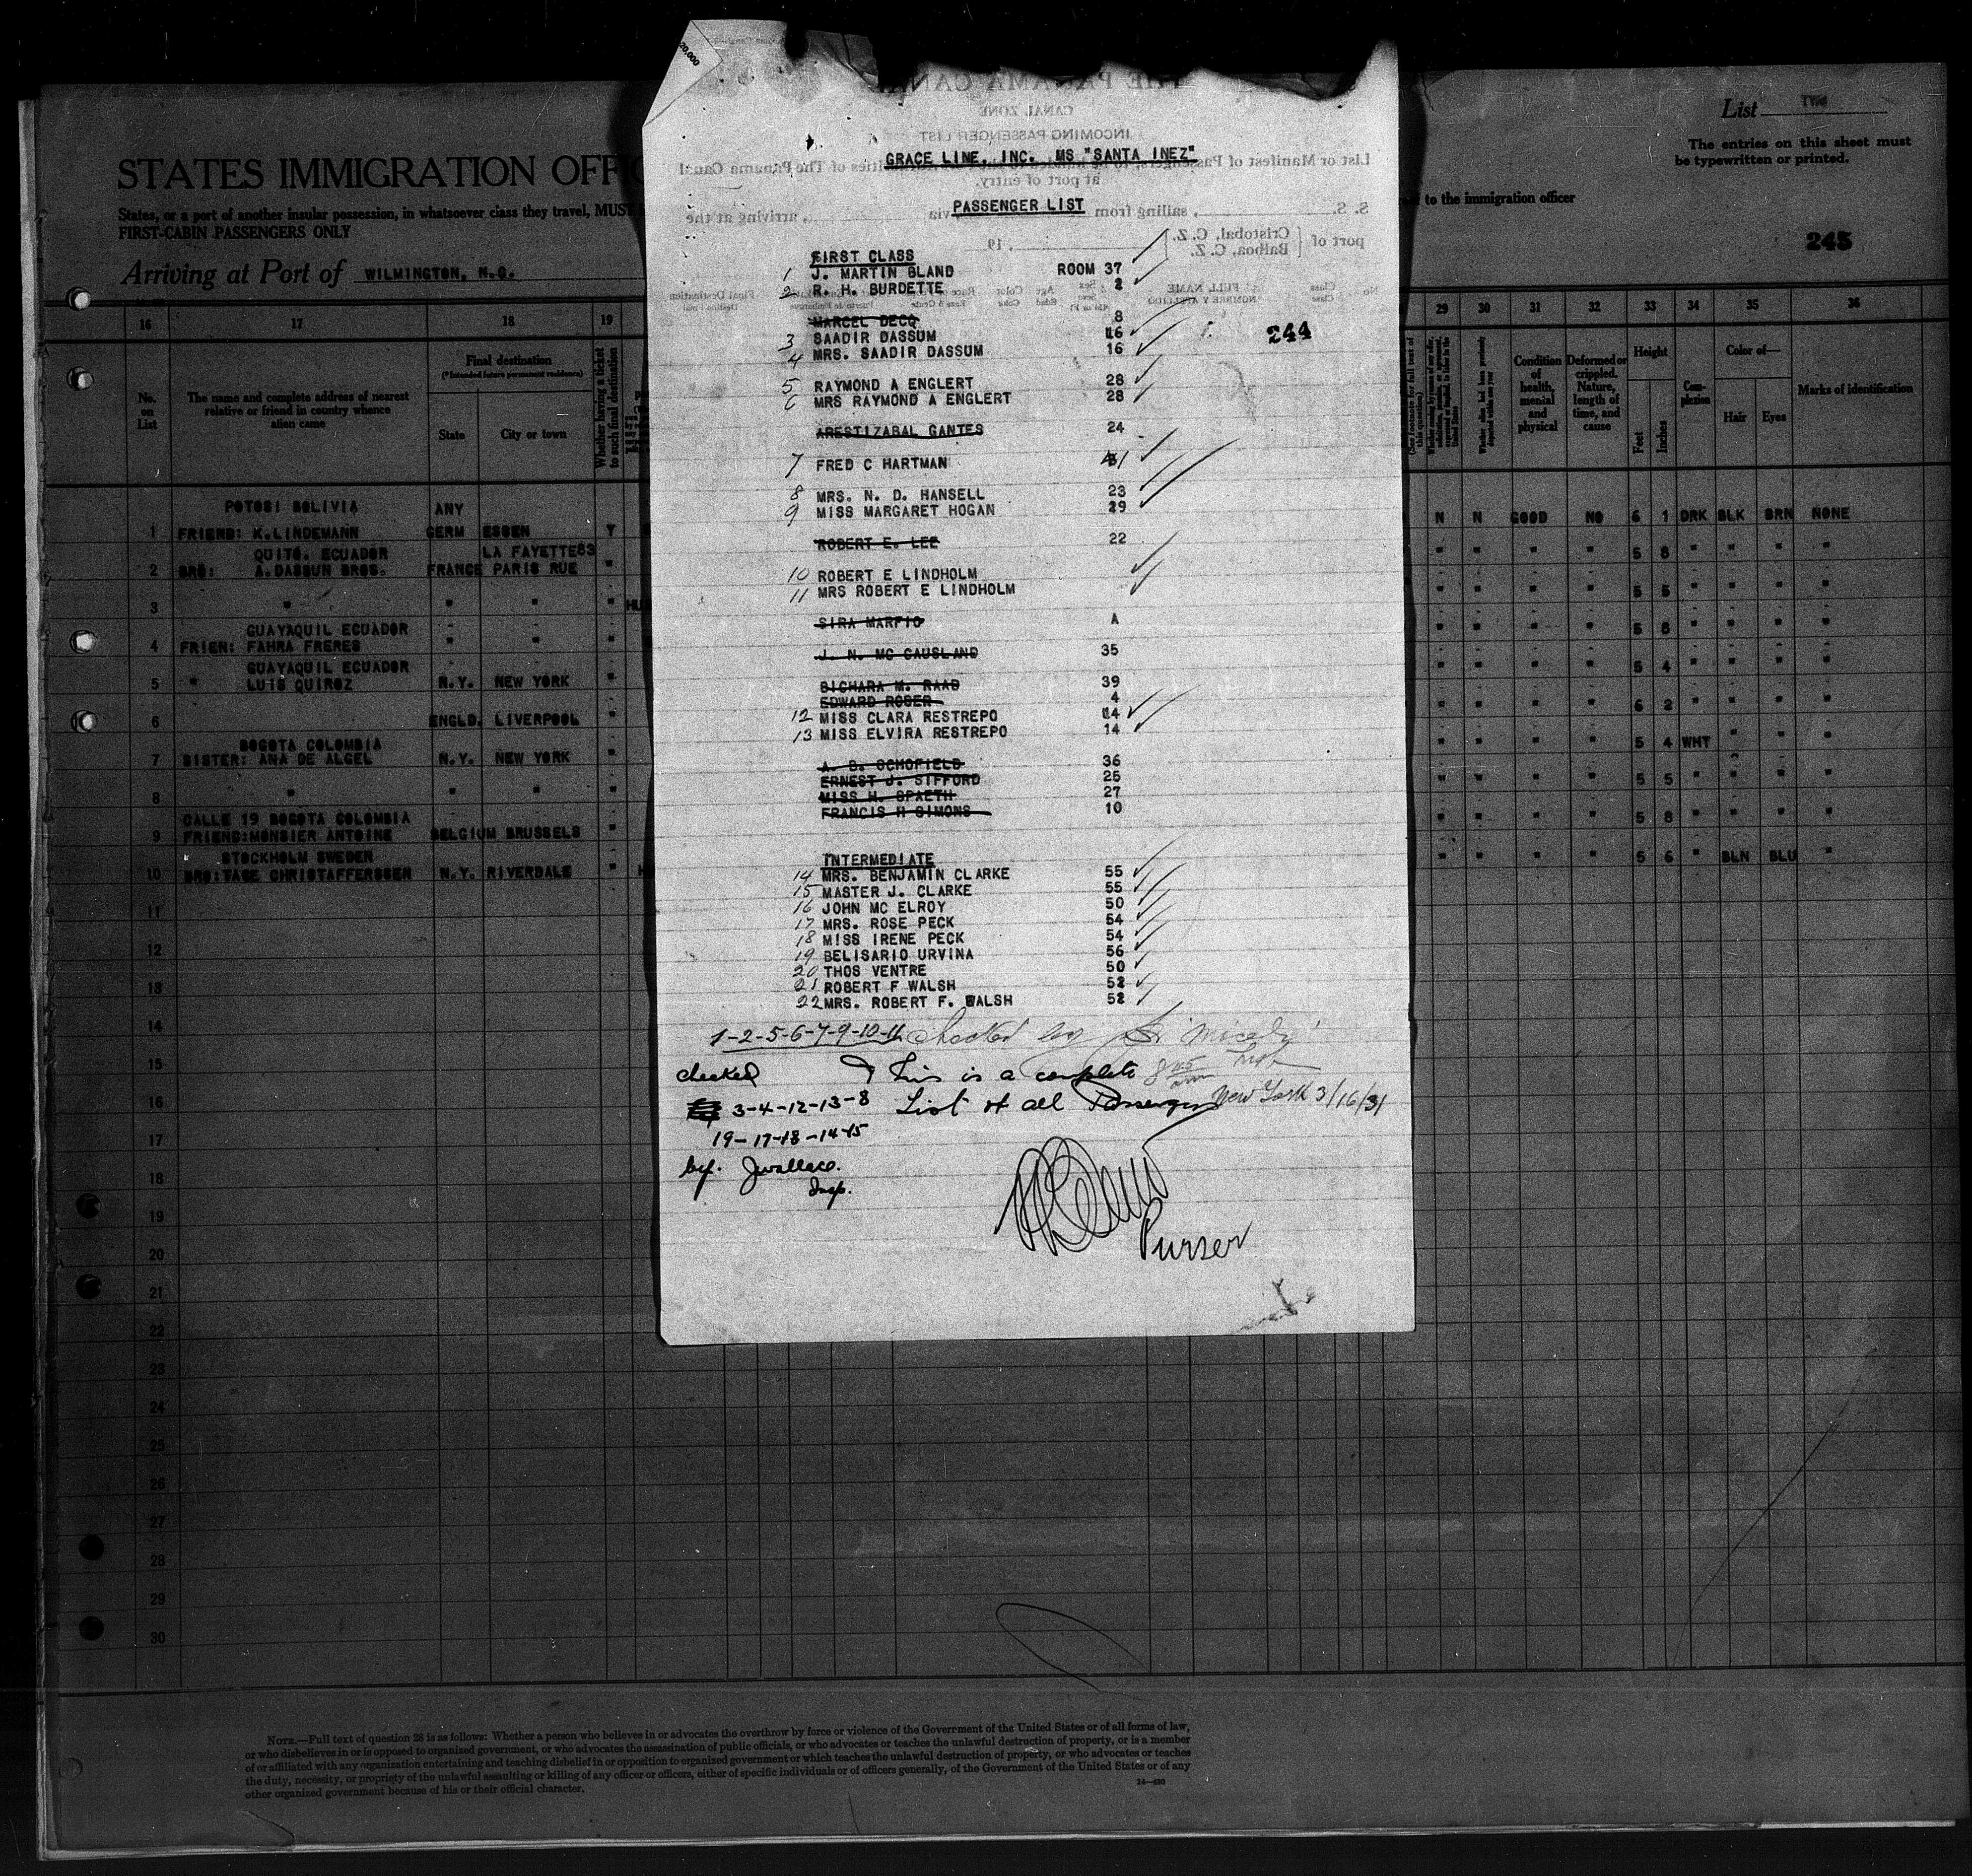 20,000
THE PANAMA CANAL
CANAL ZONE
INCOMING PASSENGER LIST
GRACE LINE, INC. MS "SANTA INEZ"
PASSENGER LIST
244
FIRST CLASS
1 J. MARTIN BLAND ROOM 37
2 R. H. BURDETTE 2
MARCEL DECQ 8
3 SAADIR DASSUM 16
4 MRS. SAADIR DASSUM 16
5 RAYMOND A ENGLERT 28
6 MRS RAYMOND A ENGLERT 28
ARESTIZABAL GANTES 24
7 FRED C HARTMAN
8 MRS. N. D. HANSELL 23
9 MISS MARGARET HOGAN 29
ROBERT E. LEE 22
10 ROBERT E LINDHOLM
11 MRS ROBERT E LINDHOLM
SIRA MARFIO A
J. N. MC CAUSLAND 35
BICHARA M. RAAD 39
EDWARD ROSER 4
12 MISS CLARA RESTREPO 14
13 MISS ELVIRA RESTREPO 14
A. B. SCHOFIELD 36
ERNEST J. SIFFORD 25
MISS H. SPAETH 27
FRANCIS H SIMONS 10
INTERMEDIATE
14 MRS. BENJAMIN CLARKE 55
15 MASTER J. CLARKE 55
16 JOHN MC ELROY 50
17 MRS. ROSE PECK 54
18 MISS IRENE PECK 54
19 BELISARIO URVINA 56
20 THOS VENTRE 50
21 ROBERT F WALSH 52
22 MRS. ROBERT F. WALSH 52
1-2-5-6-7-9-10-11 checked by
checked This is a complete 8 45 am
3-4-12-13-8 List of all Passengers New York 3/16/31
19-17-18-14-15
by. J Wallace.
Insp.
Purser
STATES IMMIGRATION OFFIC
States, or a port of another insular possession, in whatsoever class they travel, MUST
to the immigration officer
FIRST-CABIN PASSENGERS ONLY
Arriving at Port of WILMINGTON, N.C.
List TWO
The entries on this sheet must
be typewritten or printed.
245
16 17 18 19 29 30 31 32 33 34 35 36
No. on List
The name and complete address of nearest relative or friend in country whence alien came
Final destination
(*Intended future permanent residence)
State
City or town
Whether having a ticket to such final destination
Condition of health, mental and physical
Deformed or crippled. Nature, length of time, and cause
Height
Feet Inches
Complexion
Color of—
Hair Eyes
Marks of identification
POTOSI BOLIVIA ANY
1 FRIEND: K.LINDEMANN GERM ESSEN Y N N GOOD NO 6 1 DRK BLK BRN NONE
QUITO. ECUADOR LA FAYETTE83
2 BRO: A.DASSUN BROS. FRANCE PARIS RUE " " " " " 5 8 " " " "
3 " " " " " " " " 5 5 " " " "
GUAYAQUIL ECUADOR
4 FRIEN: FAHRA FRERES " " " " " " " 5 8 " " " "
GUAYAQUIL ECUADOR
5 " LUIS QUIROZ N.Y. NEW YORK " " " " " 5 4 " " " "
6 ENGLD. LIVERPOOL " " " " " 6 2 " " " "
BOGOTA COLOMBIA
7 SISTER: ANA DE ALGEL N.Y. NEW YORK " " " " " 5 4 WHT " " "
8 " " " " " " " " 5 5 " " " "
CALLE 19 BOGOTA COLOMBIA
9 FRIEND:MONSIER ANTOINE BELGIUM BRUSSELS " " " " " 5 8 " " " "
STOCKHOLM SWEDEN
10 BRO:TAGE CHRISTAFFERSSEN N.Y. RIVERDALE " " " " " 5 6 " BLN BLU "
11
12
13
14
15
16
17
18
19
20
21
22
23
24
25
26
27
28
29
30
NOTE.—Full text of question 28 is as follows: Whether a person who believes in or advocates the overthrow by force or violence of the Government of the United States or of all forms of law,
or who disbelieves in or is opposed to organized government, or who advocates the assassination of public officials, or who advocates or teaches the unlawful destruction of property, or is a member
of or affiliated with any organization entertaining and teaching disbelief in or opposition to organized government or which teaches the unlawful destruction of property, or who advocates or teaches
the duty, necessity, or propriety of the unlawful assaulting or killing of any officer or officers, either of specific individuals or of officers generally, of the Government of the United States or of any
other organized government because of his or their official character.
14—430